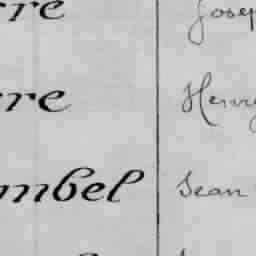 rre Josep
rre Henry
mbel Jean